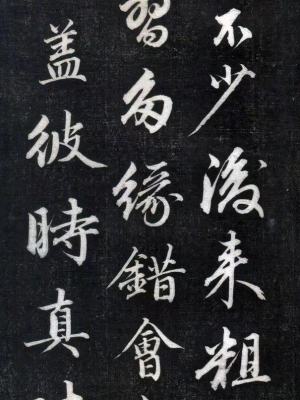 不少後来粗
習多緣錯會
盖彼時真